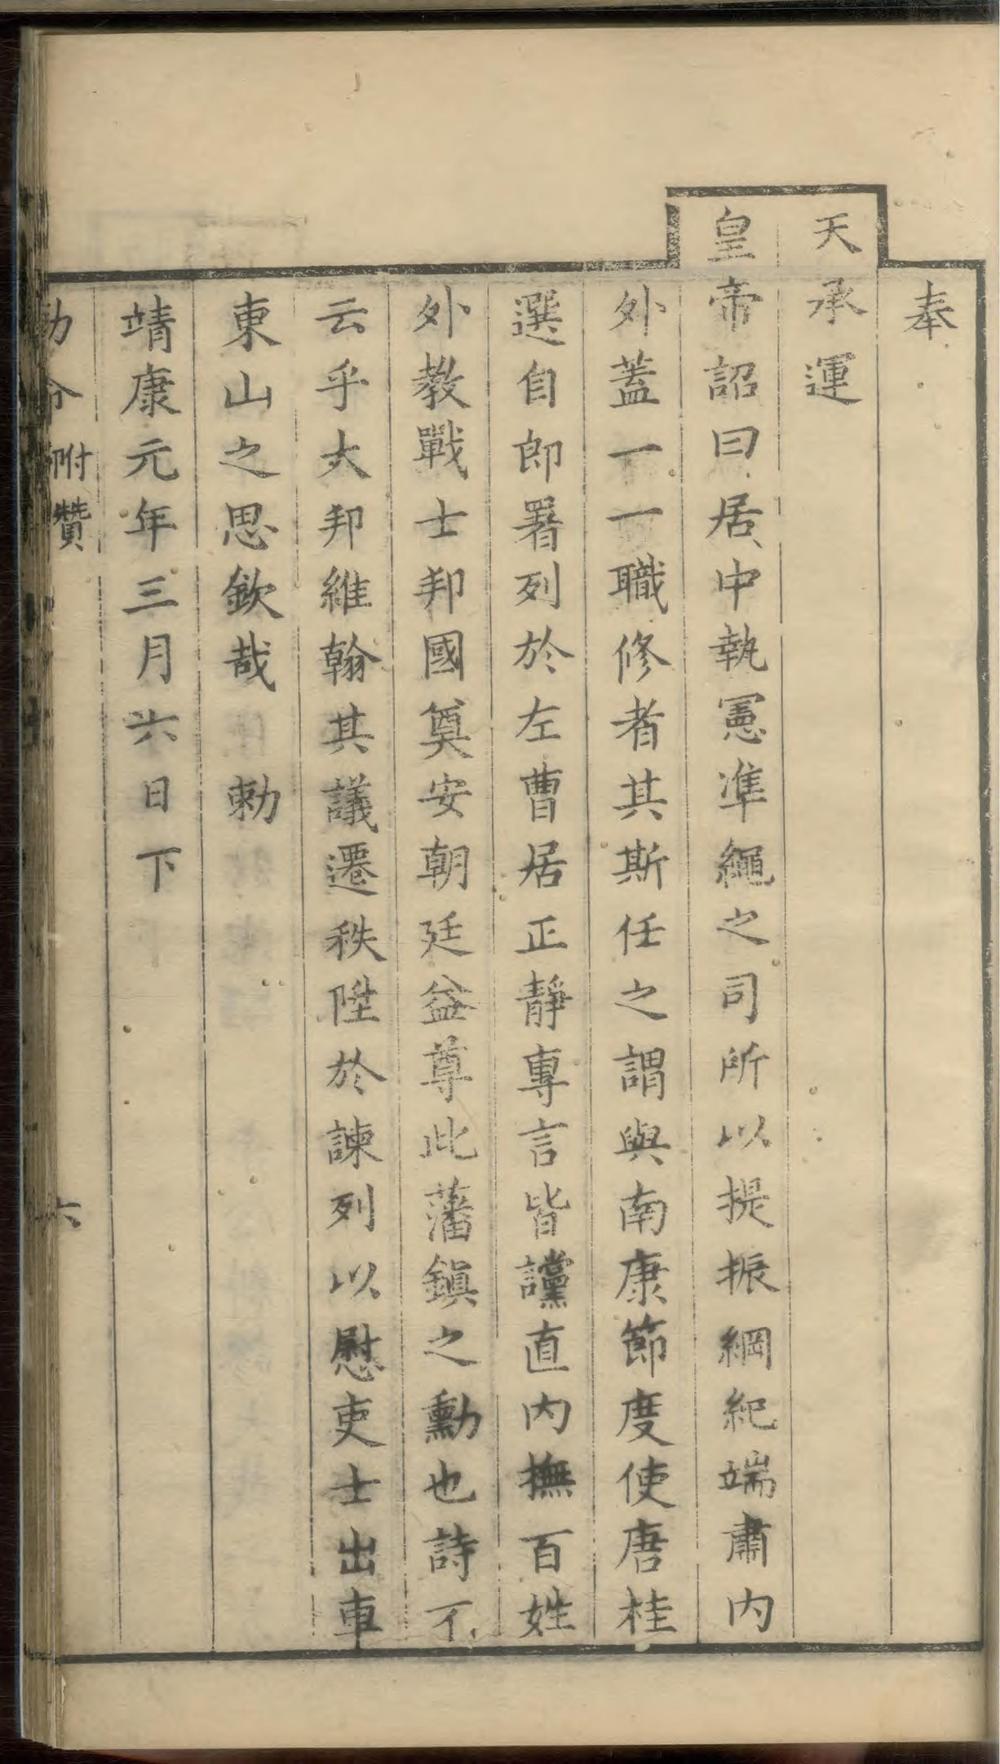 奉
天承運
皇帝詔曰居中執憲準繩之司所以提振綱紀端肅内
外蓋一一職修者其斯任之謂與南康節度使唐桂
選自郎署列於左曹居正靜專言皆讜直内撫百姓
外教戰士邦國奠安朝廷益尊此藩鎮之勳也詩不
云乎大邦維翰其議遷秩陞於諫列以慰吏士出車
東山之思欽哉　勅
靖康元年三月六日下
附贊
六